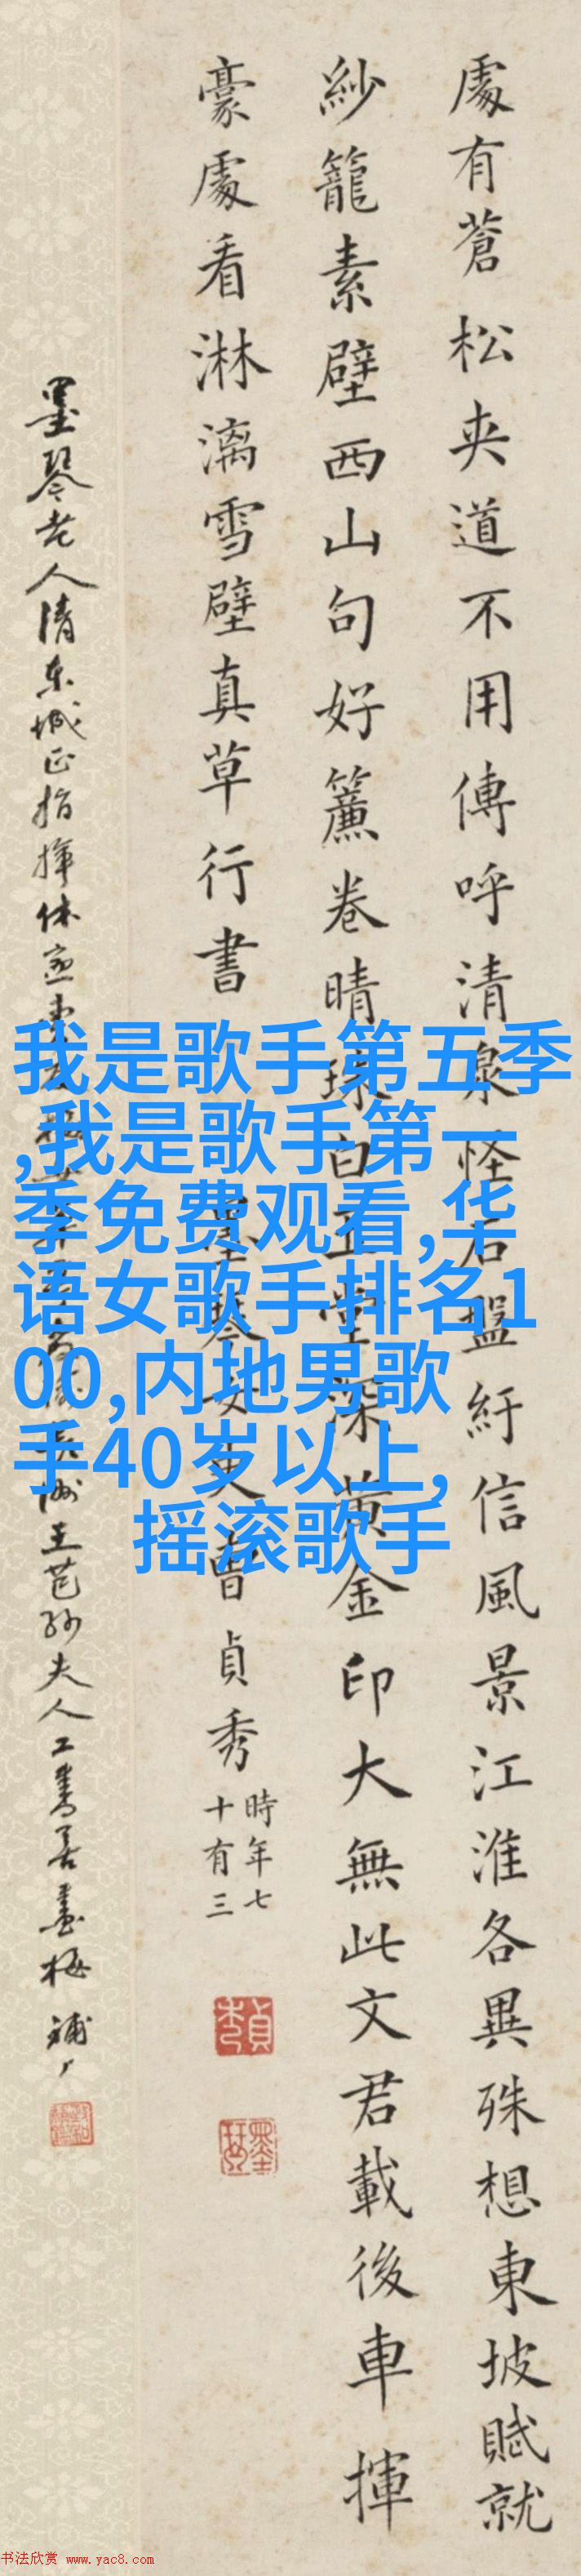 處有蒼松夾道不用傳呼清泉怪石盤紆信風景江淮各異殊想東坡賦就
紗籠素壁西山句好簾卷晴珠白玉堂深黃金印大無此文君載後車揮
豪處看淋漓雪壁真草行書
墨琴女史曹貞秀
時年七
十有三
墨琴老人清東城正指揮
王芑孫夫人工書善畫梅
我是歌手第五季
,我是歌手第一
季免费观看,华
语女歌手排名1
00,内地男歌
手40岁以上,
摇滚歌手
書法欣赏 www.yac8.com